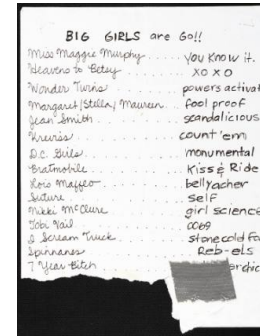 BIG GIRLS are Go!!
Miss Maggie Murphy ..... you know it.
Heavens to Betsy ..... XOXO
Wonder Twins ..... powers activat
Margaret/Stella/Maureen .... fool proof
Jean Smith ..... scandalicious
..... count 'em
D.C. Girls ..... monumental
Bratmobile ..... Kiss & Ride
Lois Maffeo ..... bellyacher
Suture ..... self
Nikki McClure ..... girl science
Tobi Vail ..... 0069
I Scream Truck ..... stonecold fo
Spinnanes ..... Reb-els
7 Year Bitch ..... rchic